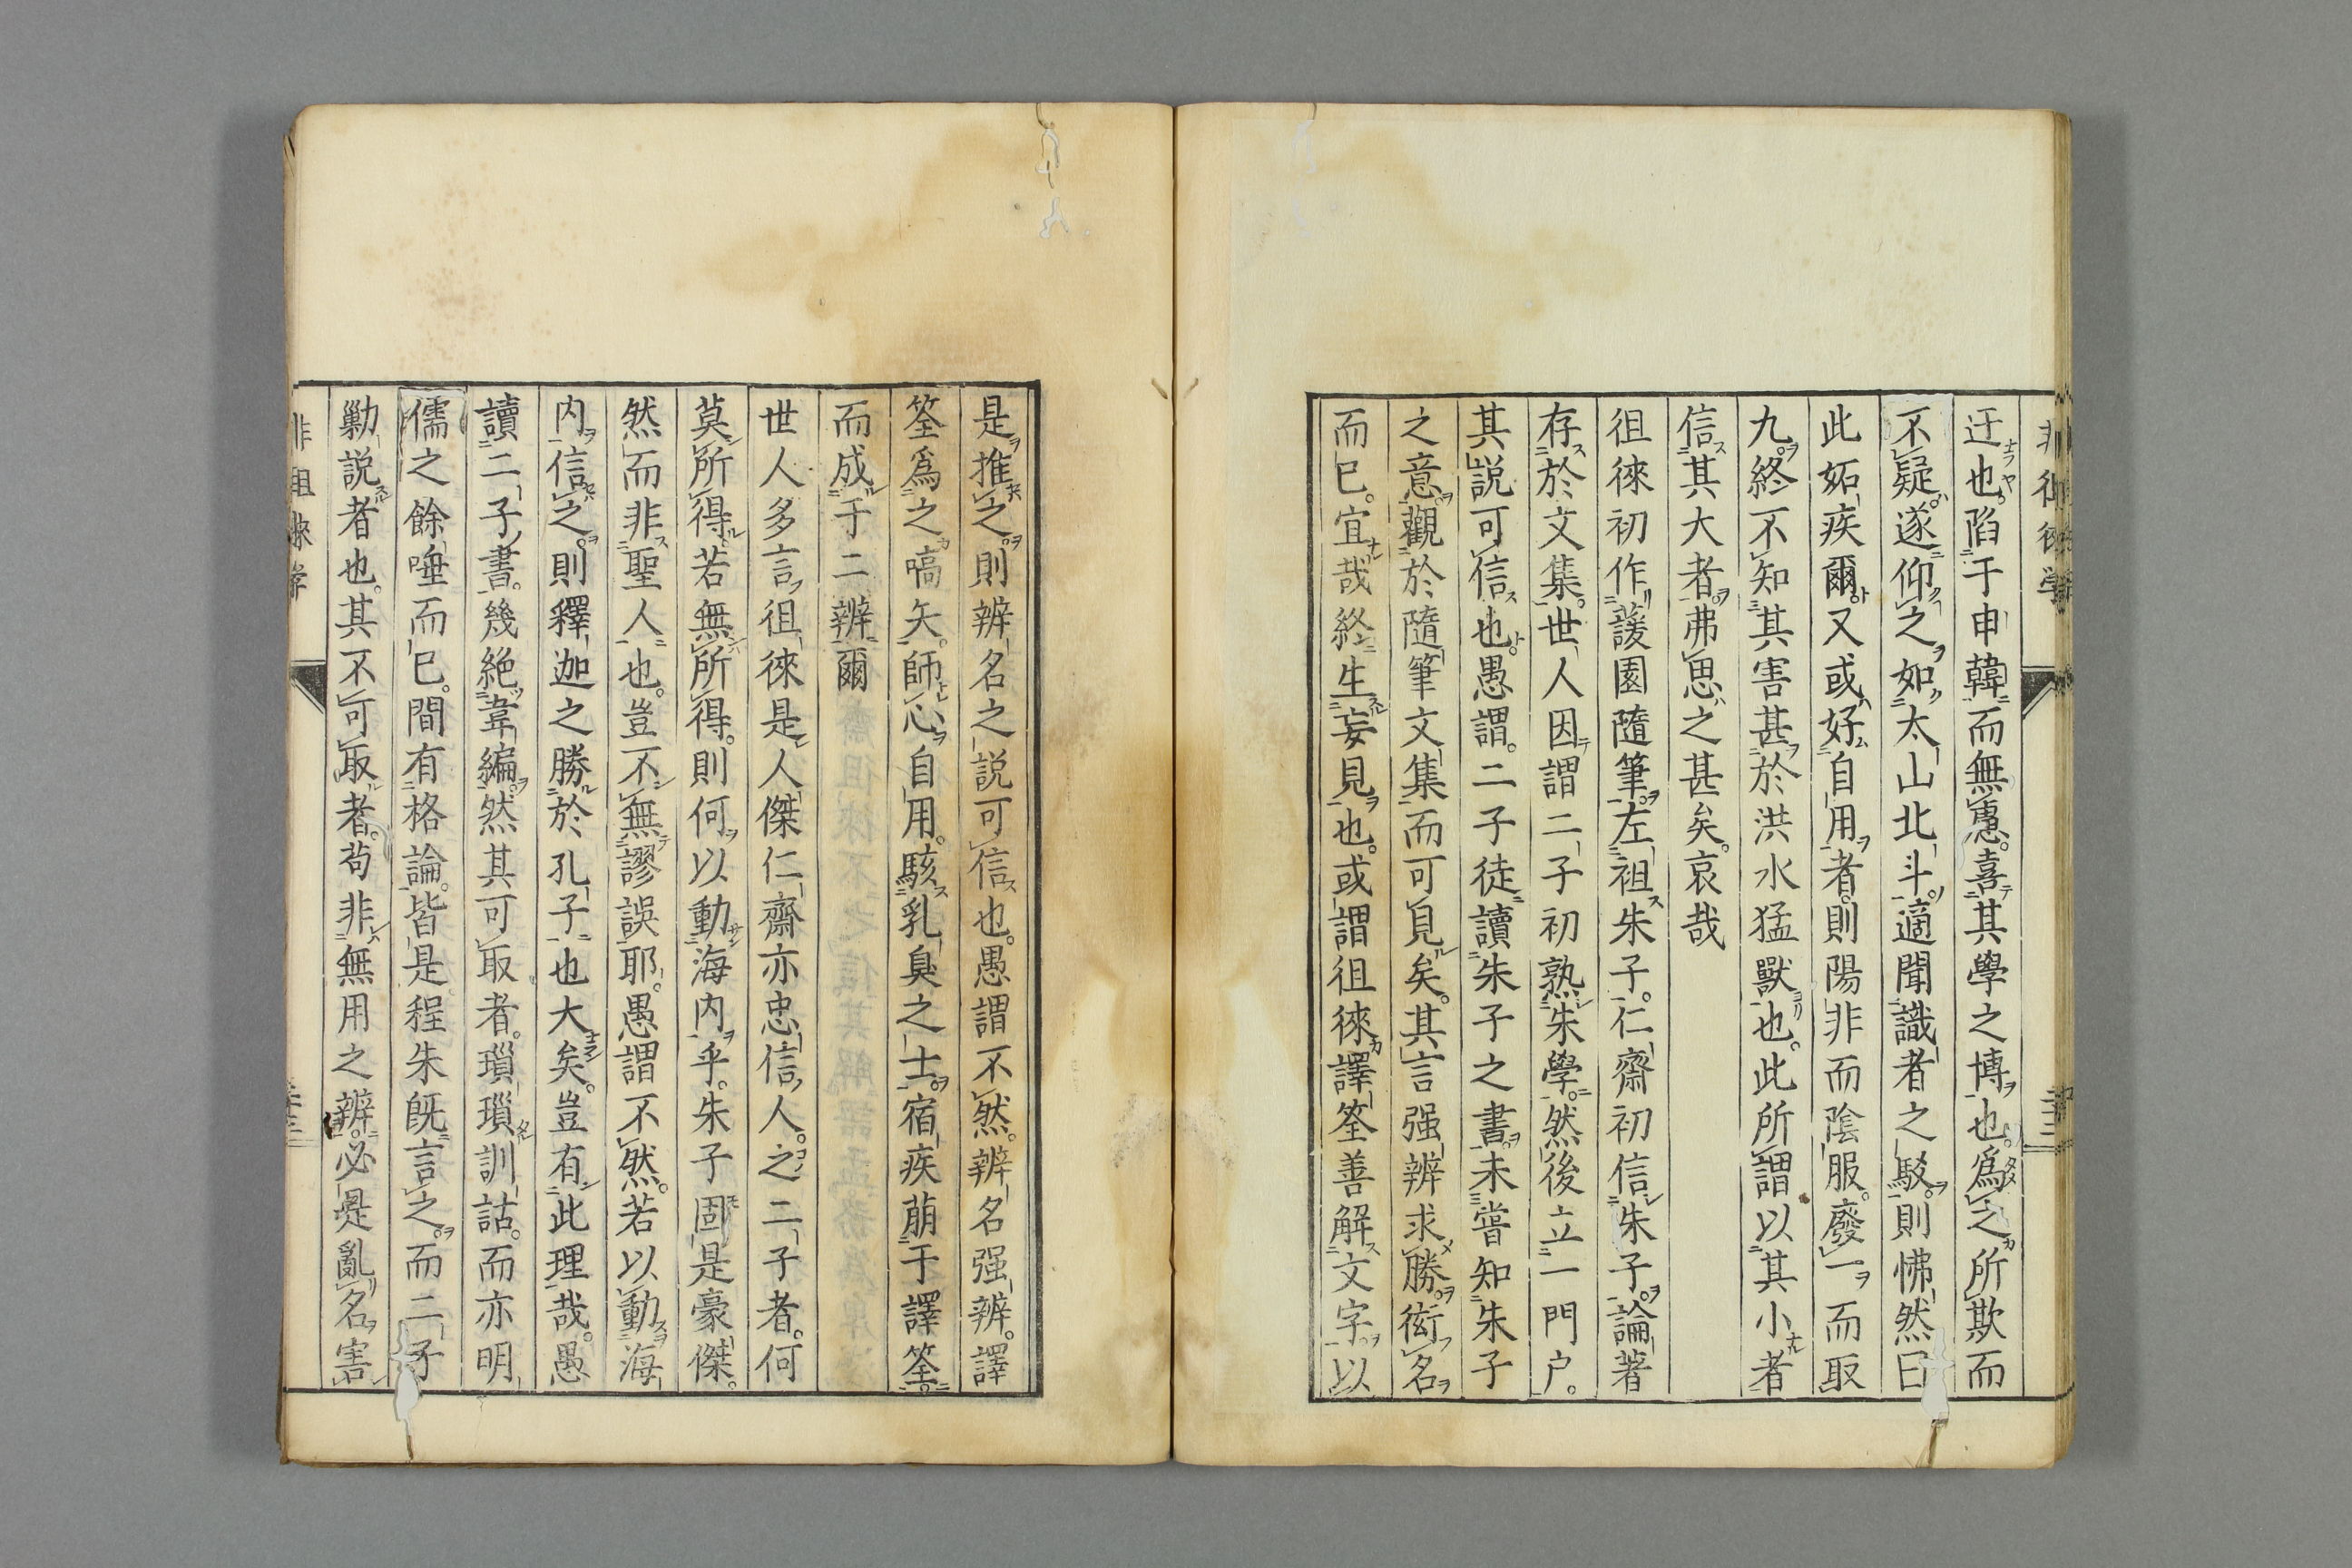 迂也陷于申韓而無慮喜其學之博也爲之所欺而
不疑遂仰之如太山北斗適聞識者之駁則怫然曰
此妬疾爾又或好自用者則陽非而陰服廢一而取
九終不知其害甚於洪水猛獸也此所謂以其小者
信其大者弗思之甚矣哀哉
徂徠初作蘐園隨筆左祖朱子仁齋初信朱子論著
存於文集世人因謂二子初熟朱學然後立一門户
其説可信也愚謂二子徒讀朱子之書未嘗知朱子
之意觀於隨筆文集而可見矣其言强辨求勝衒名
而已宜哉終生妄見也或謂徂徠譯筌善解文字以
是推之則辨名之説可信也愚謂不然辨名强辨譯
筌爲之嚆矢師心自用駭乳臭之士宿疾萠于譯筌
而成于二辨爾
世人多言徂徠是人傑仁齋亦忠信人之二子者何
莫所得若無所得則何以動海内乎朱子固是豪傑
然而非聖人也豈不無謬誤耶愚謂不然若以動海
内信之則釋迦之勝於孔子也大矣豈有此理哉愚
讀二子書幾絶韋編然其可取者瑣瑣訓詁而亦明
儒之餘唾而已間有格論皆是程朱旣言之而二子
勦説者也其不可取者苟非無用之辨必是亂名害
非徂徠学